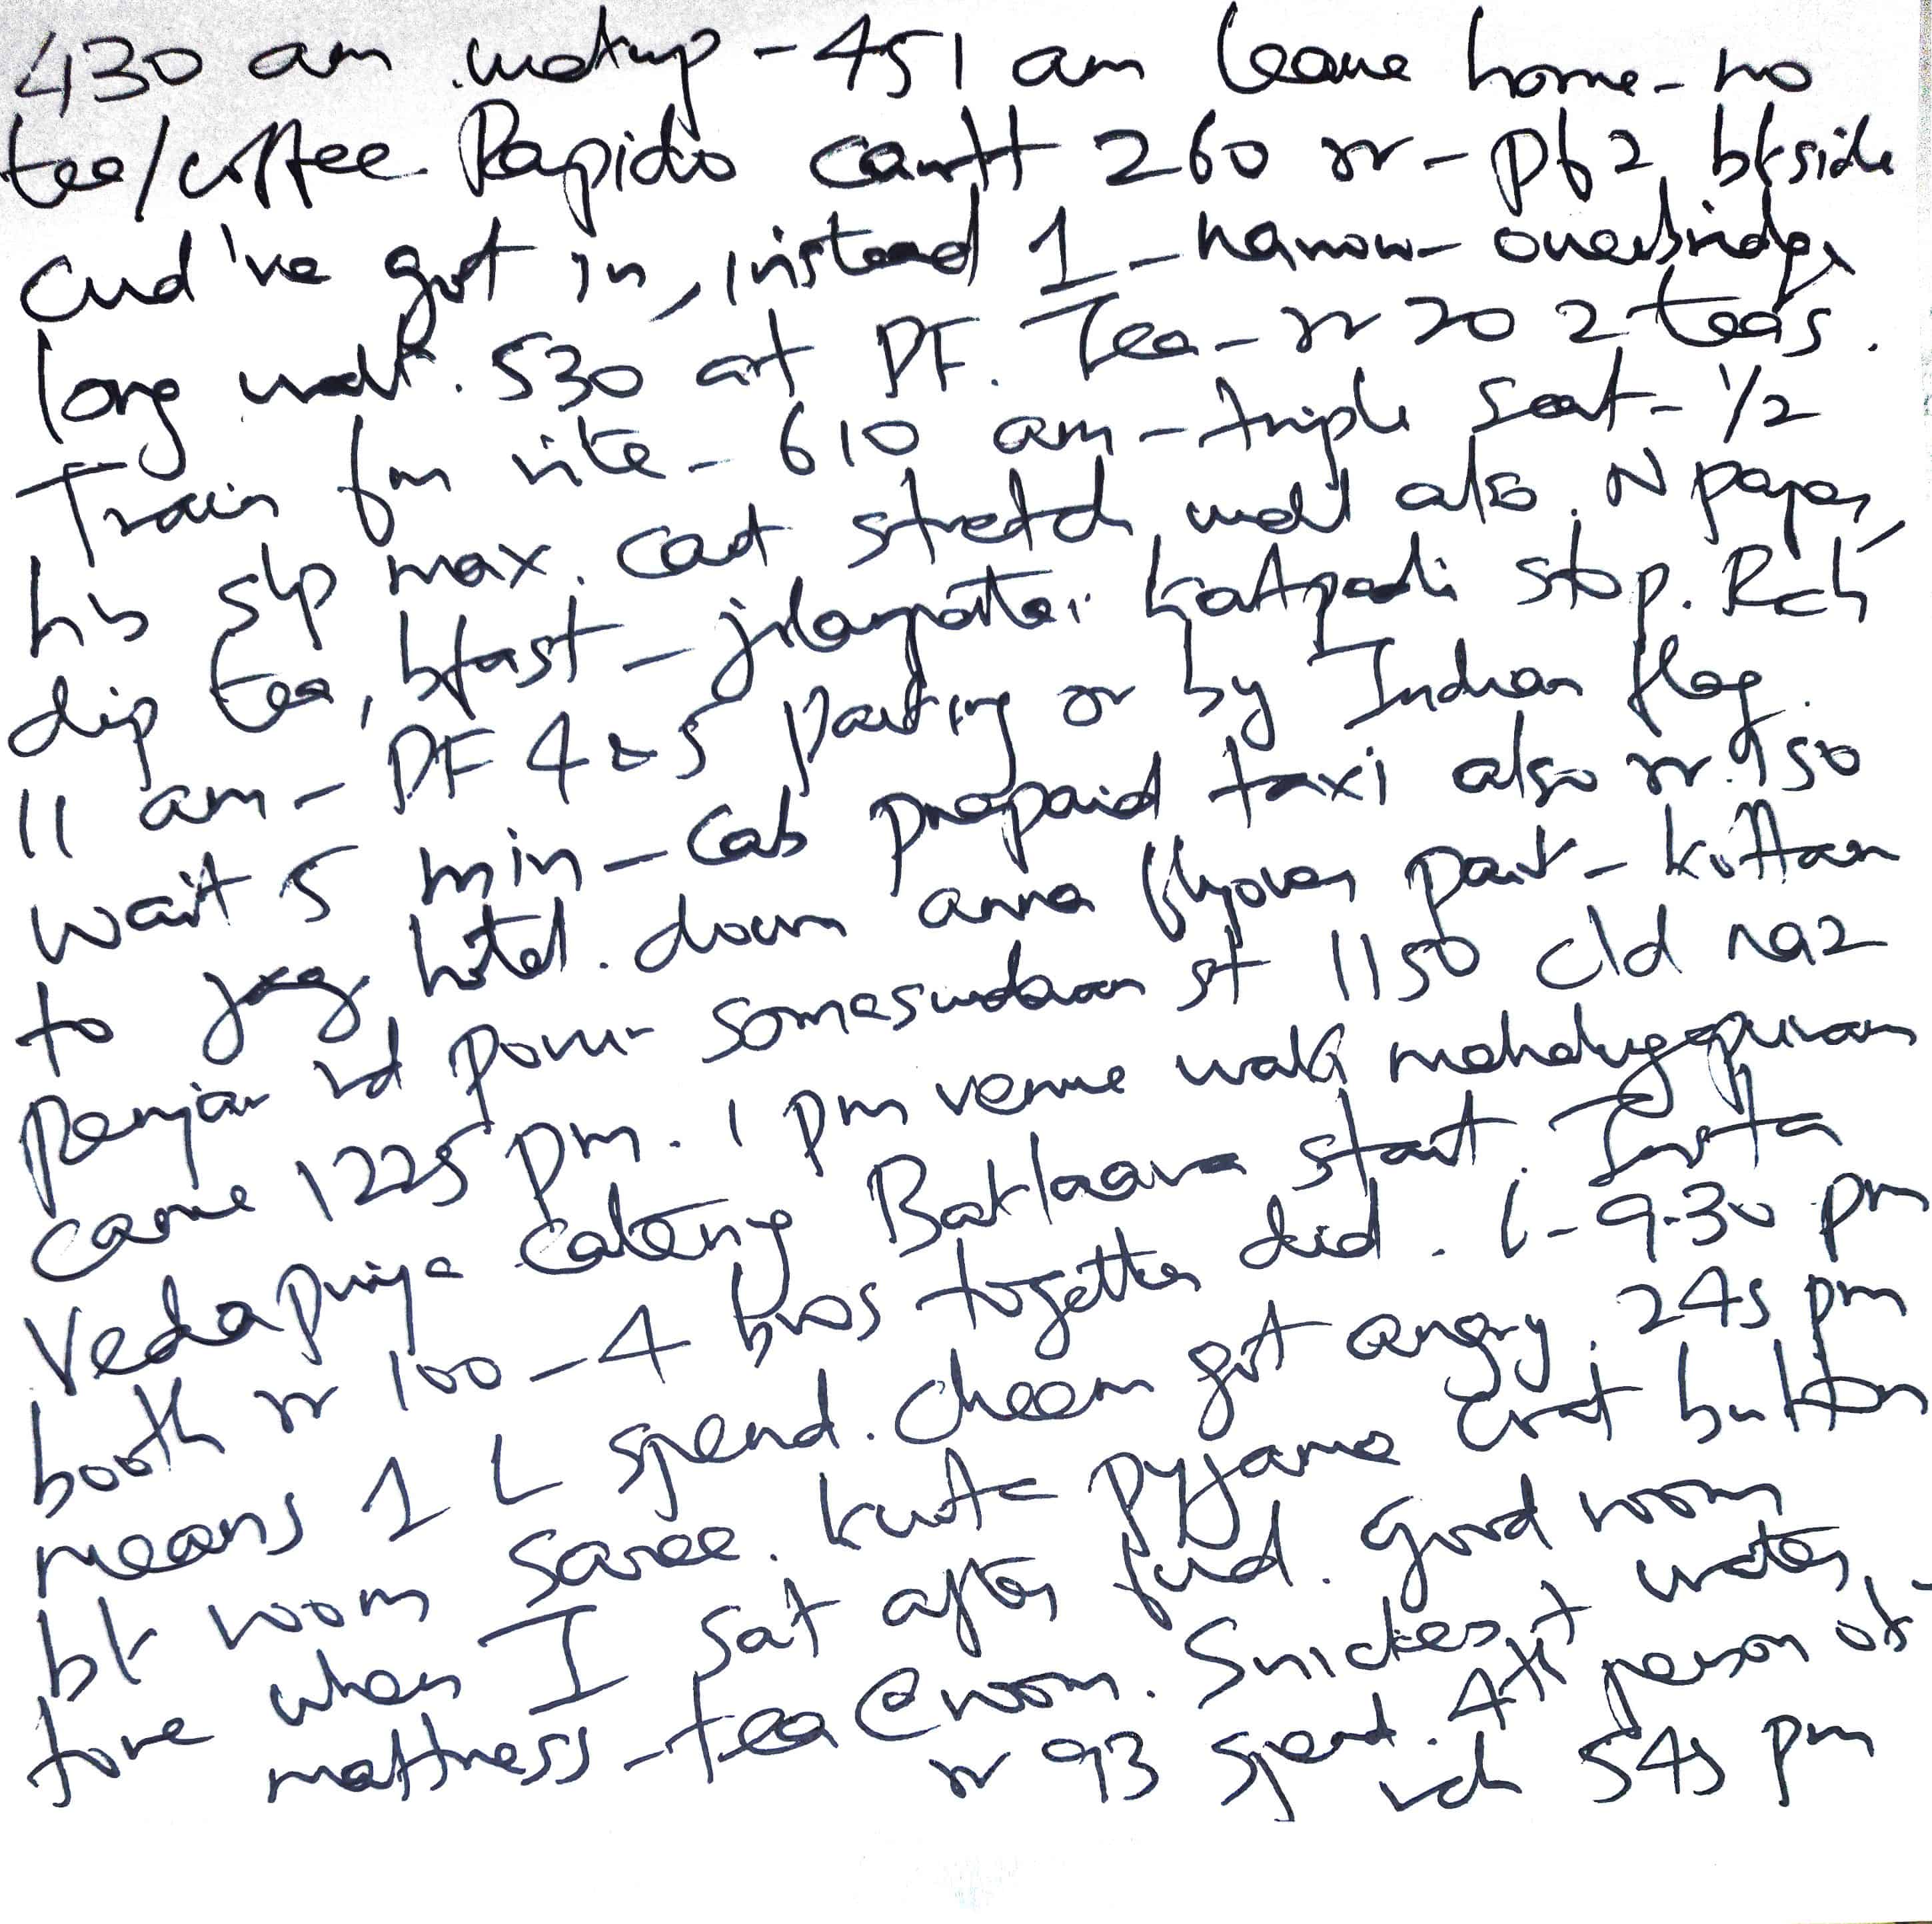 430 am wakeup - 451 am leave home - no
tee/coffee. Rapido cantt 260 rr - pf 2 bkside
cud've got in, instead 1 - narrow - overbridge
long walk. 530 at PF. Tea - rr 20 2 teas.
Train fm rite - 610 am - triple seat - 1/2
hr slp max. cant stretch well also. N paper,
dip tea, bfast - jolarpettai katpadi stop. Rch
11 am - PF 4 & 5 parking or by Indian flag.
wait 5 min - cab prepaid taxi also rr. 950
to hotel. down anna flyover park - kottan
rd porur somesundaram st 1150 cld naz
came 1225 pm. 1 pm venue walk mahalugapuram
Vedapriya catering Baklaava start. Insta
booth rr 100 - 4 bros together did. 6 - 9.30 pm
means 1 L spend. cheem got angry. 245 pm
bk room saree. kurta pyjama crot button
tore when I sat after fud. good room
mattress - tea @ room. Snickers + water
rr 93 spend. 4th person ok
rch 545 pm